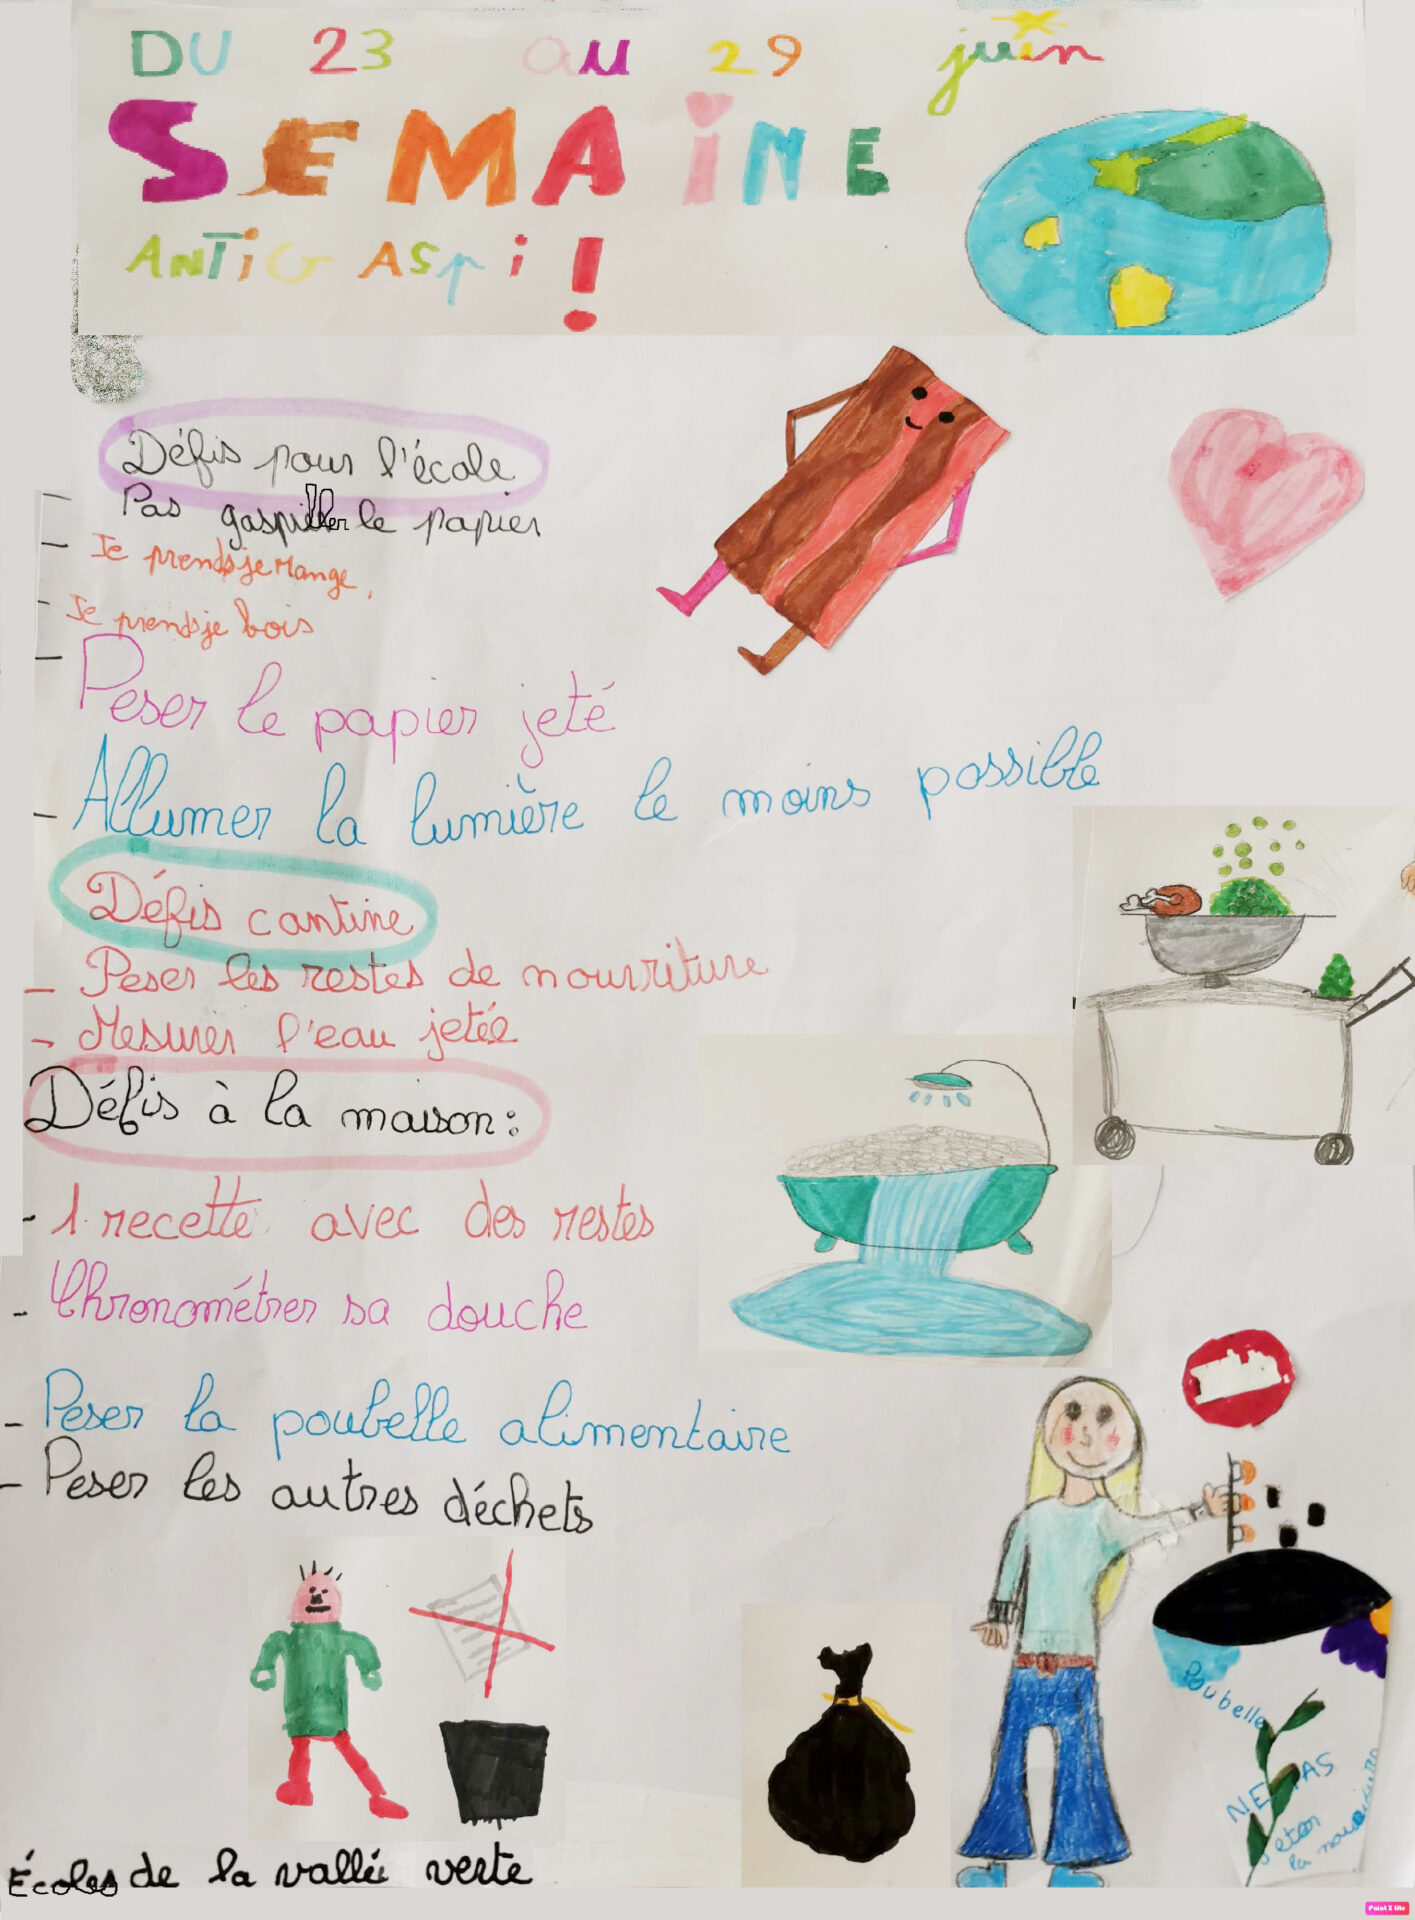 DU 23 au 29 juin
SEMAINE
ANTIGASPi !
Défis pour l'école
- Pas gaspiller le papier
- Je prends je mange,
- Je prends je bois
- Peser le papier jeté
- Allumer la lumière le moins possible
Défis cantine
- Peser les restes de nourriture
- Mesurer l'eau jetée
Défis à la maison :
- 1 recette avec des restes
- Chronométrer sa douche
- Peser la poubelle alimentaire
- Peser les autres déchets
Poubelle
NE PAS
jeter
la nourriture
Écoles de la vallée verte
Paint X lite